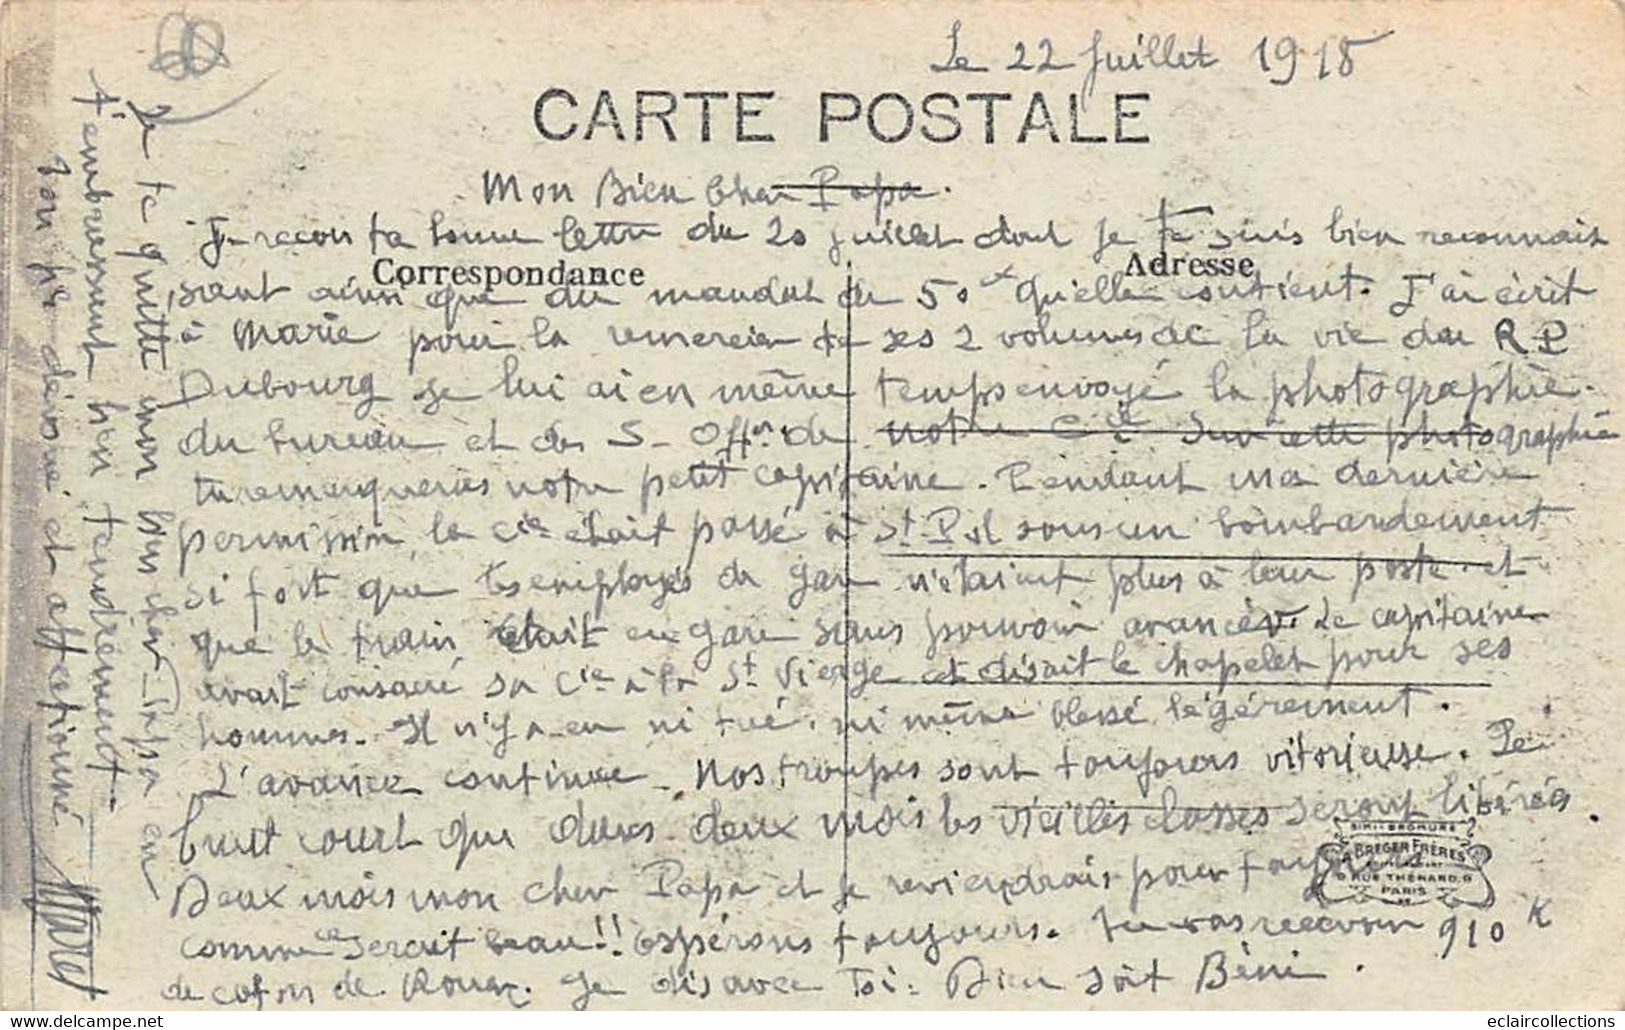 Le 22 Juillet 1918
CARTE POSTALE
Mon Bien Cher Papa.
Je recois ta bonne lettre du 20 juillet dont je te suis bien reconnais
Correspondance
Adresse
sant ainsi que du mandat de 50 qu'elle contient. J'ai écrit
à Marie pour la remercier de ses 2 volumes de la vie du R P
Dubourg je lui ai en même temps envoyé la photographie
du bureau et des S-Offers de notre Cie Sur cette photographie
tu remarqueras notre petit capitaine. Pendant ma dernière
permission, la Cie était passé à St. Pol sous un bombardement
si fort que les employés de gare n'étaient plus à leur poste et
que le train était en gare sans pouvoir avancer. Le capitaine
avait consacré sa Cie à la St Vierge et disait le chapelet pour ses
hommes. Il n'y a eu ni tué, ni même blessé légérement.
L'avance continue. Nos troupes sont toujours vitorieuse. Le
bruit court que dans deux mois les vieilles classes seront libérés.
Deux mois mon cher Papa et je reviendrais pour toujours
comme ce serait beau!! Espérons toujours. Tu vas recevoir 910 K
de coton de Rouen. Je dis avec Toi: Dieu soit Béni.
Je te quitte mon bien cher Papa en
t'embrassant bien tendrement.
Ton fils dévoué et affectionné
SIMI-BROMURE
A. BREGER FRÈRES
9 RUE THÉNARD. 9
PARIS
eclaircollections